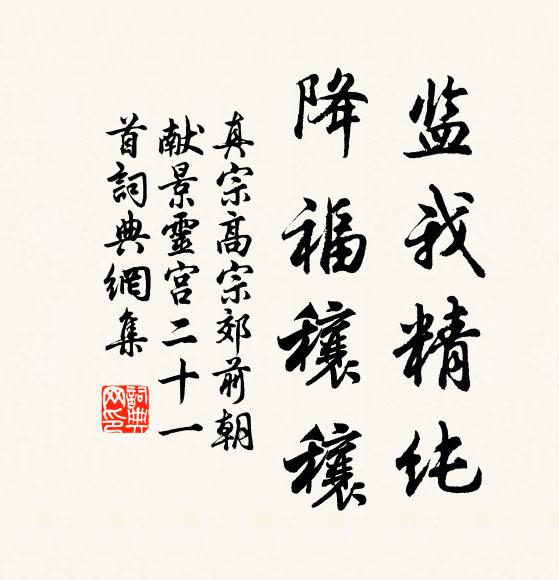 监我精纯
降福穰穰
真宗高宗郊前朝
献景靈宫二十一
首詞典網集
詞典網印